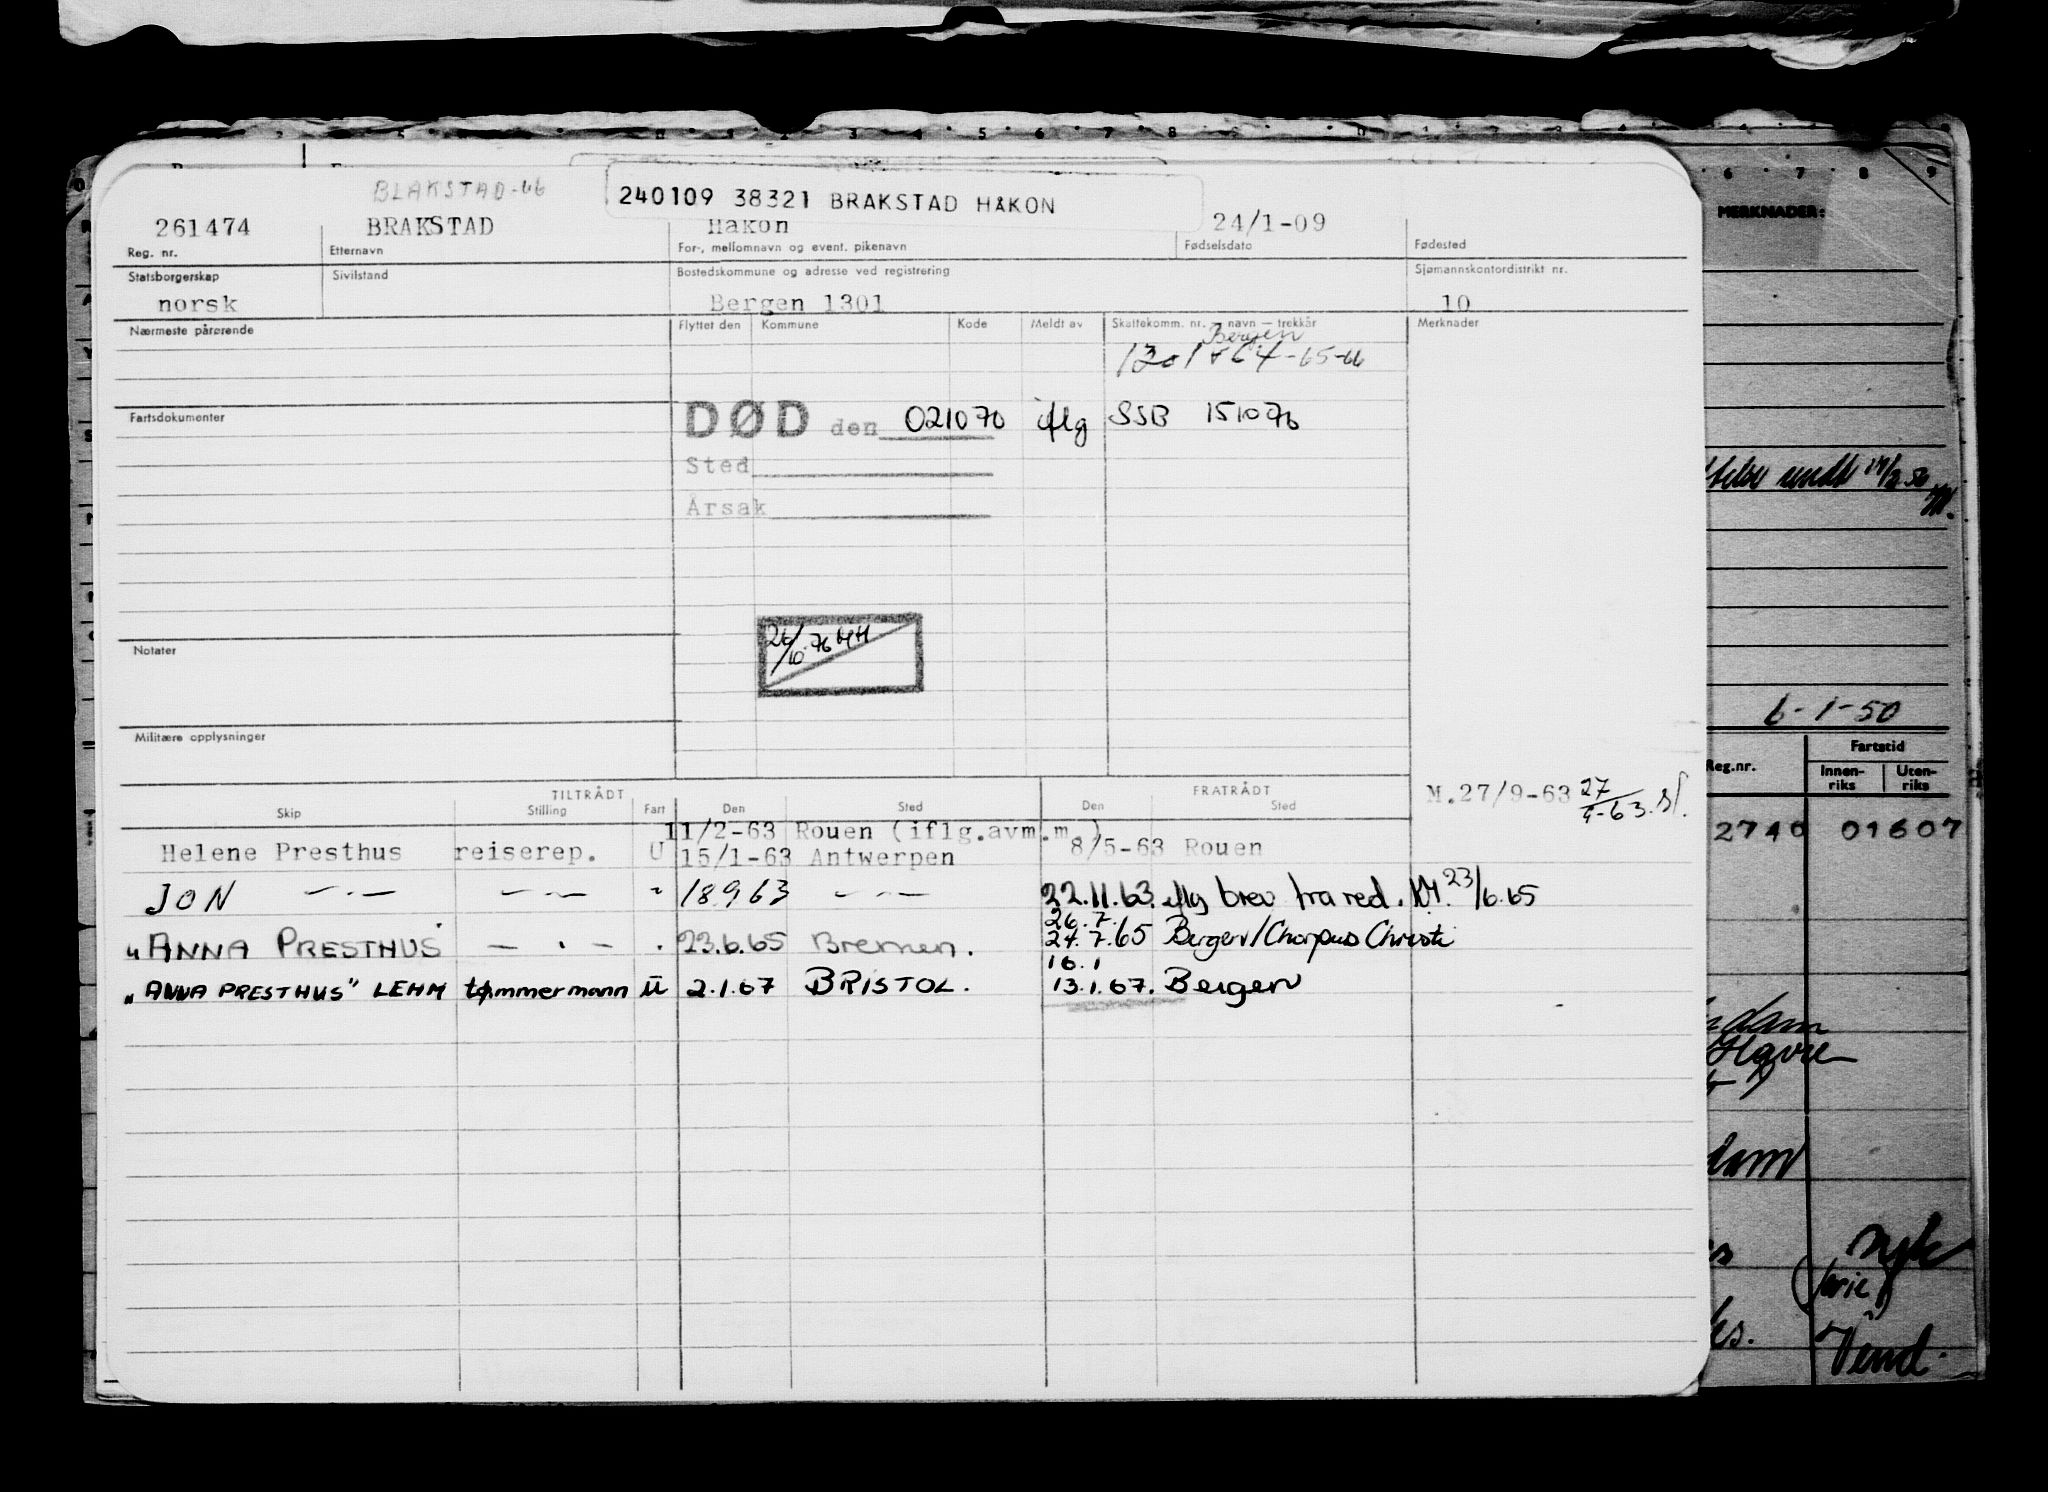 BLAKSTAD-46
240109 38321 BRAKSTAD HÅKON
261474 BRAKSTAD Håkon 24/1-09
Reg. nr. Etternavn For-, mellomnavn og event. pikenavn Fødselsdato Fødested
Statsborgerskap Sivilstand Bostedskommune og adresse ved registrering Sjømannskontordistrikt nr.
norsk Bergen 1301 10
Nærmeste pårørende Flyttet den Kommune Kode Meldt av Skattekomm. nr. navn — trekkår Merknader
Bergen
1301 64-65-66
Fartsdokumenter
DØD den 021076 iflg SSB 151076
Sted
Årsak
26/10-76 HH
Notater
Militære opplysninger
TILTRÅDT FRATRÅDT
Skip Stilling Fart Den Sted Den Sted
M.27/9-63 27/9-63.
11/2-63 Rouen (iflg.avm.m.)
Helene Presthus reiserep. U 15/1-63 Antwerpen 8/5-63 Rouen
JON — · — — · — " 18963 — · — 22.11.63. iflg brev fra red. 23/6.65
26.7.
"ANNA PRESTHUS" — · — . 23.6.65 Bremen. 24.7.65 Bergen/Chorpus Christi
16.1
"ANNA PRESTHUS" LEHM tømmermann U 2.1.67 BRISTOL. 13.1.67. Bergen
6 7 8 9
MERKNADER:
sendt
6-1-50
Reg.nr. Fartstid
Innen-riks Uten-riks
2740 01607
dam
Havre
dam
syk
(ferie)
Vend.